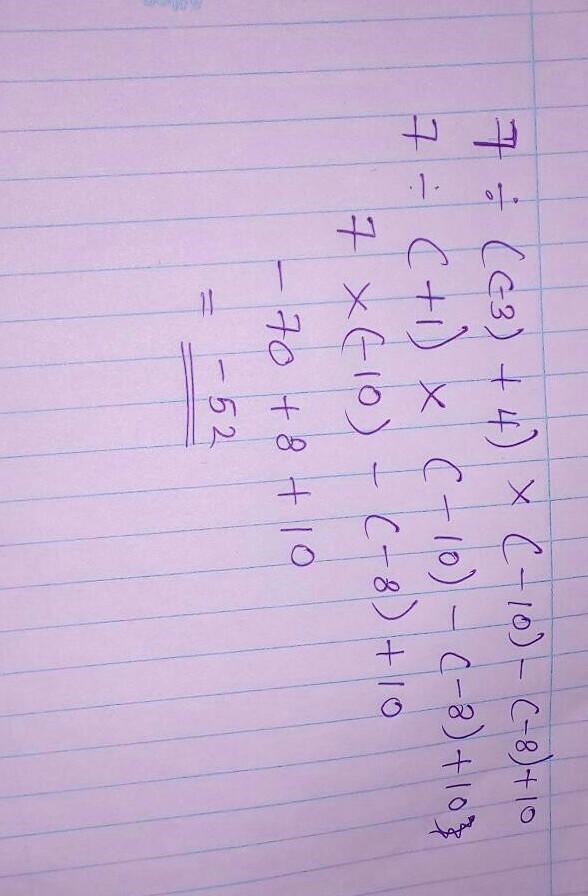 7 ÷ ((-3) + 4) × (-10) - (-8) + 10
7 ÷ (+1) × (-10) - (-8) + 10
7 × (-10) - (-8) + 10
- 70 + 8 + 10
= - 52